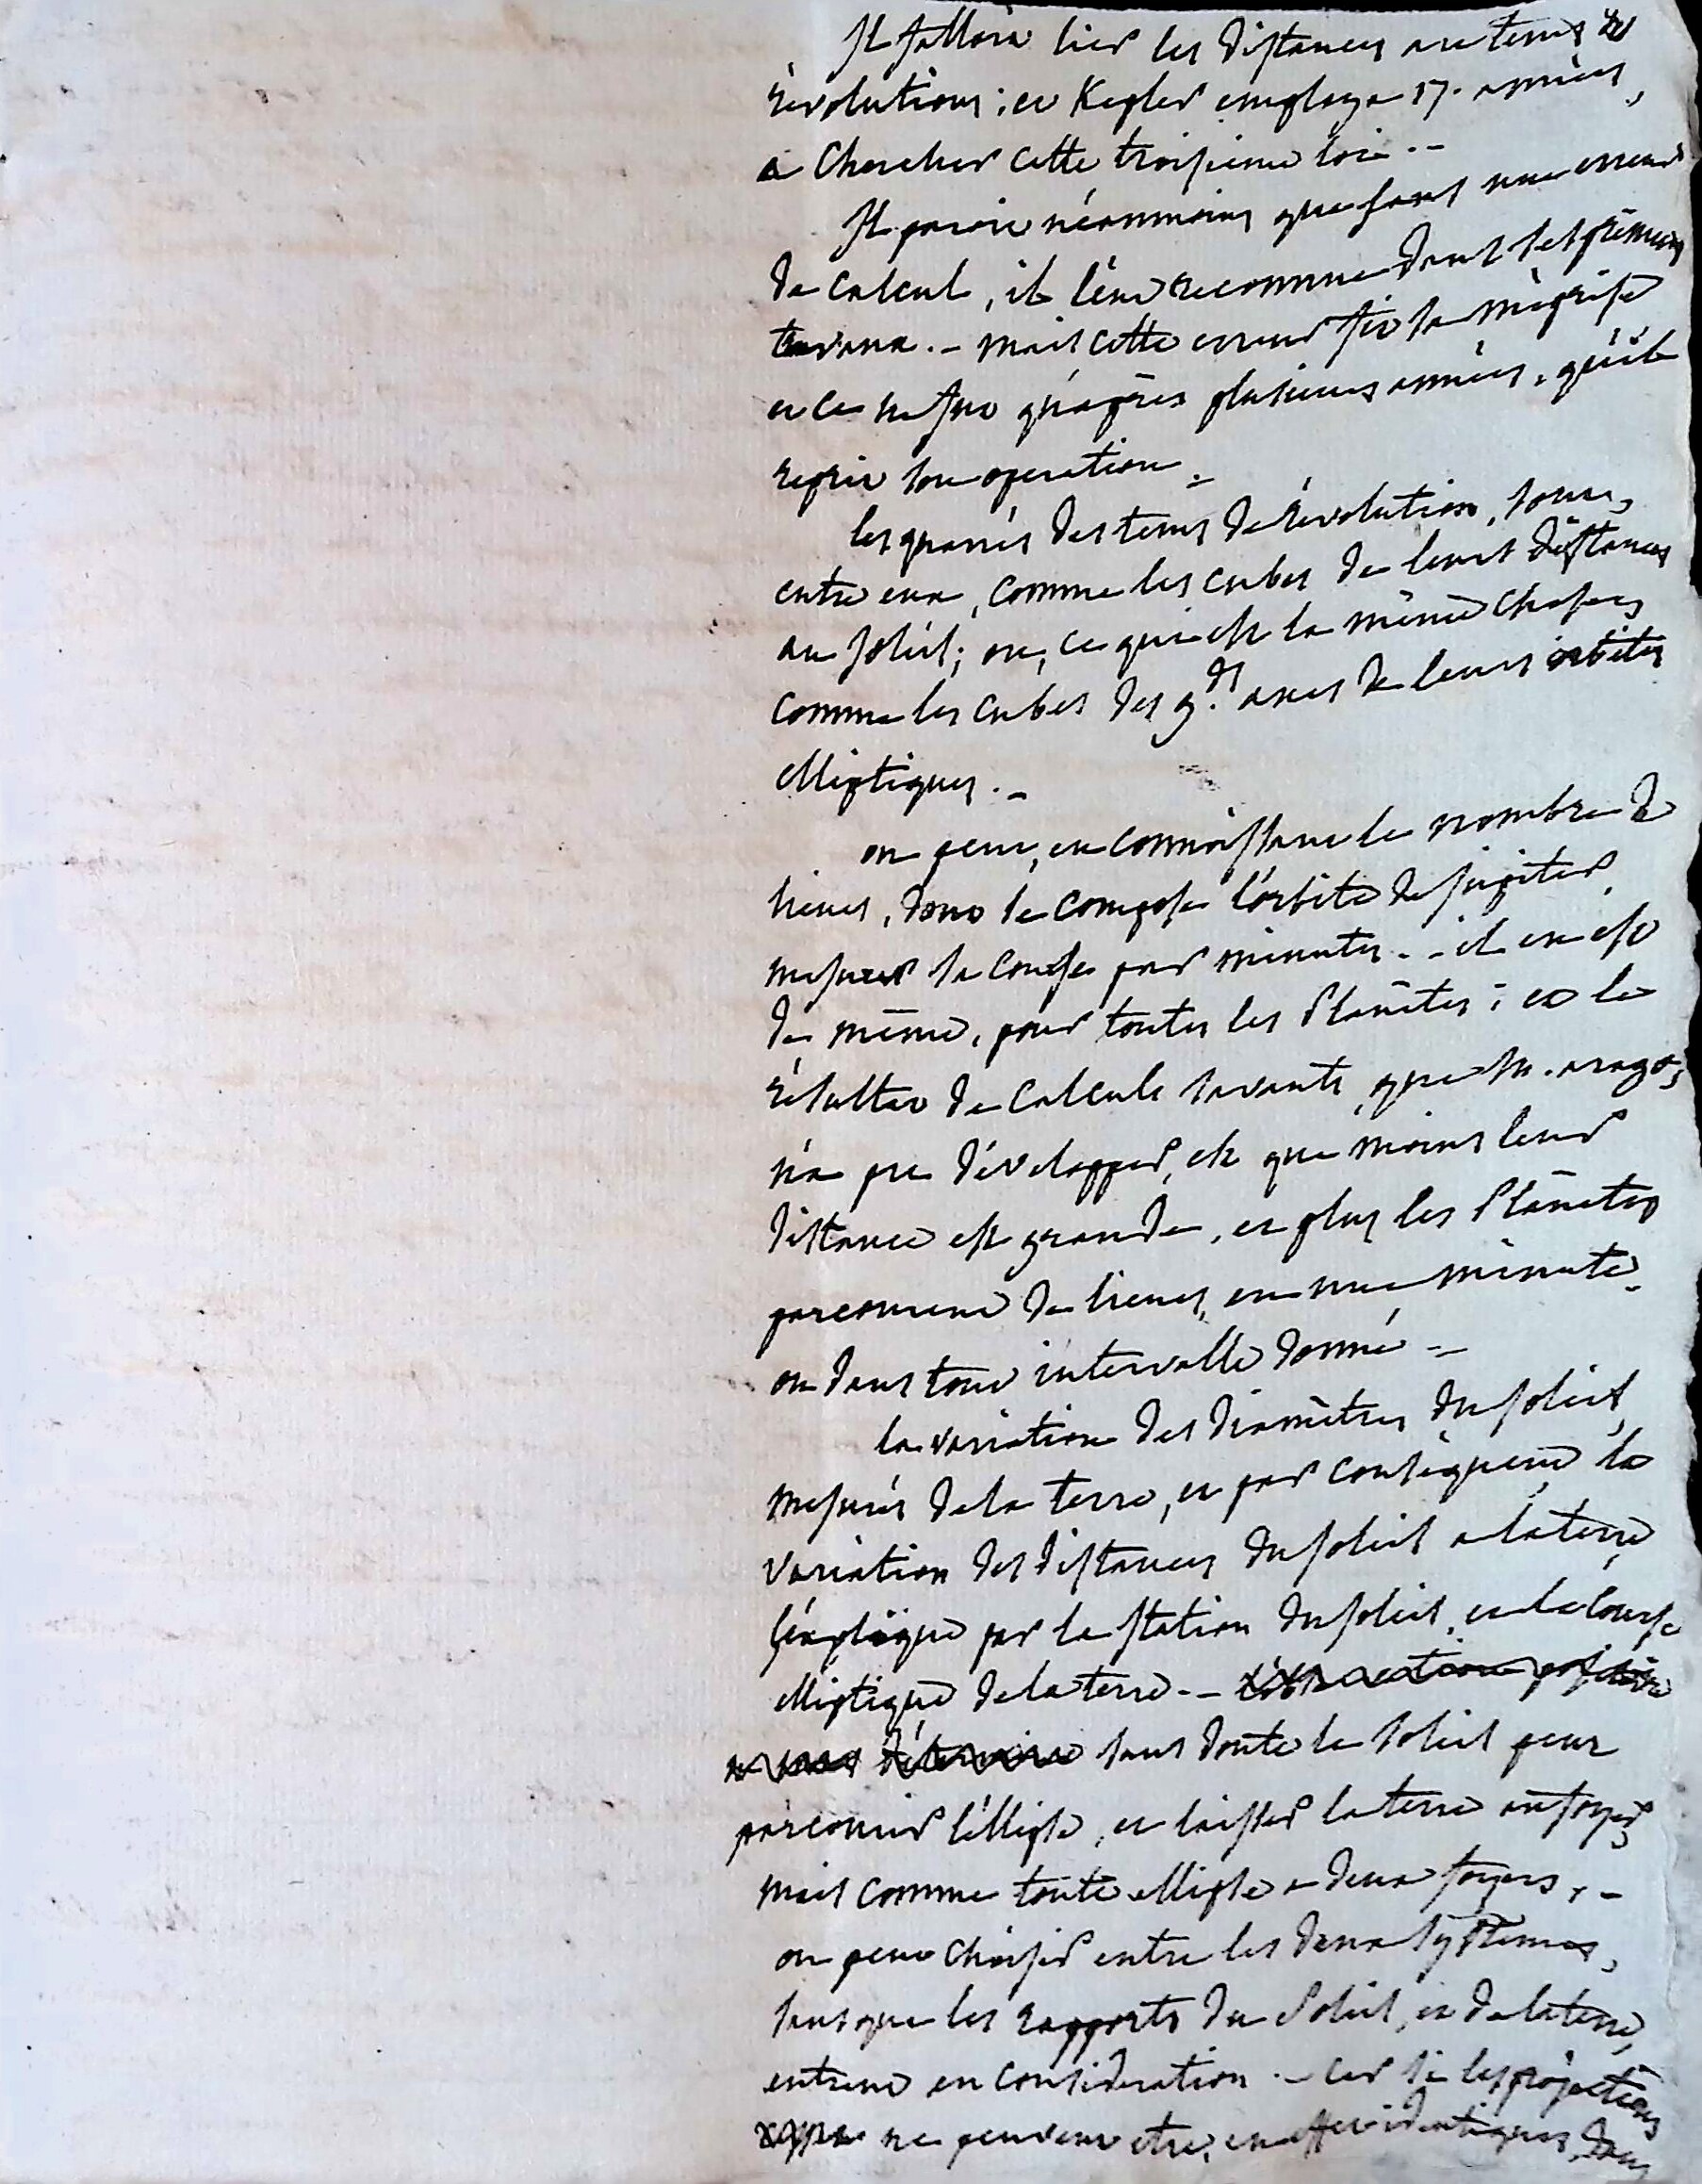 Il falloit lier les distances au tems des
révolutions ; et Kepler employa 17. années,
a chercher cette troisieme loi. -
Il paroit néanmoins que sans une erreur
de calcul, il l'eut reconnue dans ses premiers
travaux. - mais cette erreur fit sa méprise
et ce ne fut qu'après plusieurs années, qu'il
reprit son operation. -
les quarrés des tems de révolution, sont,
entre eux, comme les cubes de leurs distances
au soleil ; ou, ce qui est la même chose,
comme les cubes des gds. axes de leurs orbites
elliptiques. -
on peut, en connoissant le nombre de
lieues, dont se compose l'orbite de jupiter,
mesurer sa course par minutes. - il en est
de même, pour toutes les Planètes ; et le
résultat de calculs savants, que M. arago,
n'a pu développer, est que moins leur
distance est grande, et plus les Planètes
parcourent de lieues, en une minute,
ou dans tout intervalle donné. -
la variation des diamètres du soleil,
mesurés de la terre, et par conséquent la
variation des distances du soleil a la terre
s'explique par la station du soleil, et la course
elliptique de la terre. -
sans doute le soleil peut
parcourir l'éllipse, et laisser la terre au foyer,
mais comme toute ellipse a deux foyers, -
on peut choisir entre les deux systèmes,
sans que les rapports du Soleil, et de la terre,
entrent en considération. - car si les projections
ne peuvent etre, en effet identiques, dans